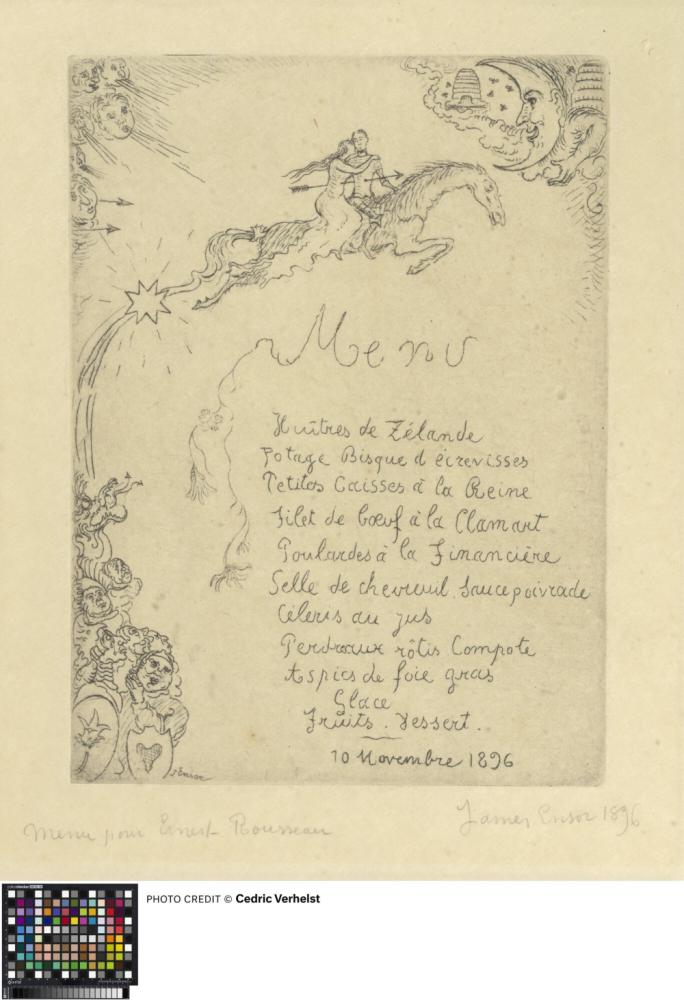 Menu
Huîtres de Zélande
Potage Bisque d'écrevisses
Petites Caisses à la Reine
Filet de bœuf à la Clamart
Poulardes à la Financière
Selle de chevreuil. Sauce poivrade
Céleris au jus
Perdreaux rôtis Compote
Aspics de foie gras
Glace
Fruits. Dessert.
10 Novembre 1896
J Ensor
Menu pour Ernest Rousseau
James Ensor 1896
PHOTO CREDIT © Cedric Verhelst